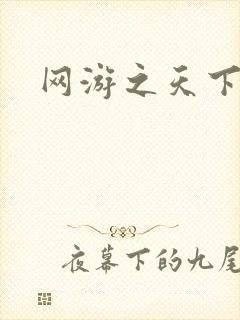 网游之天下
夜幕下的九尾